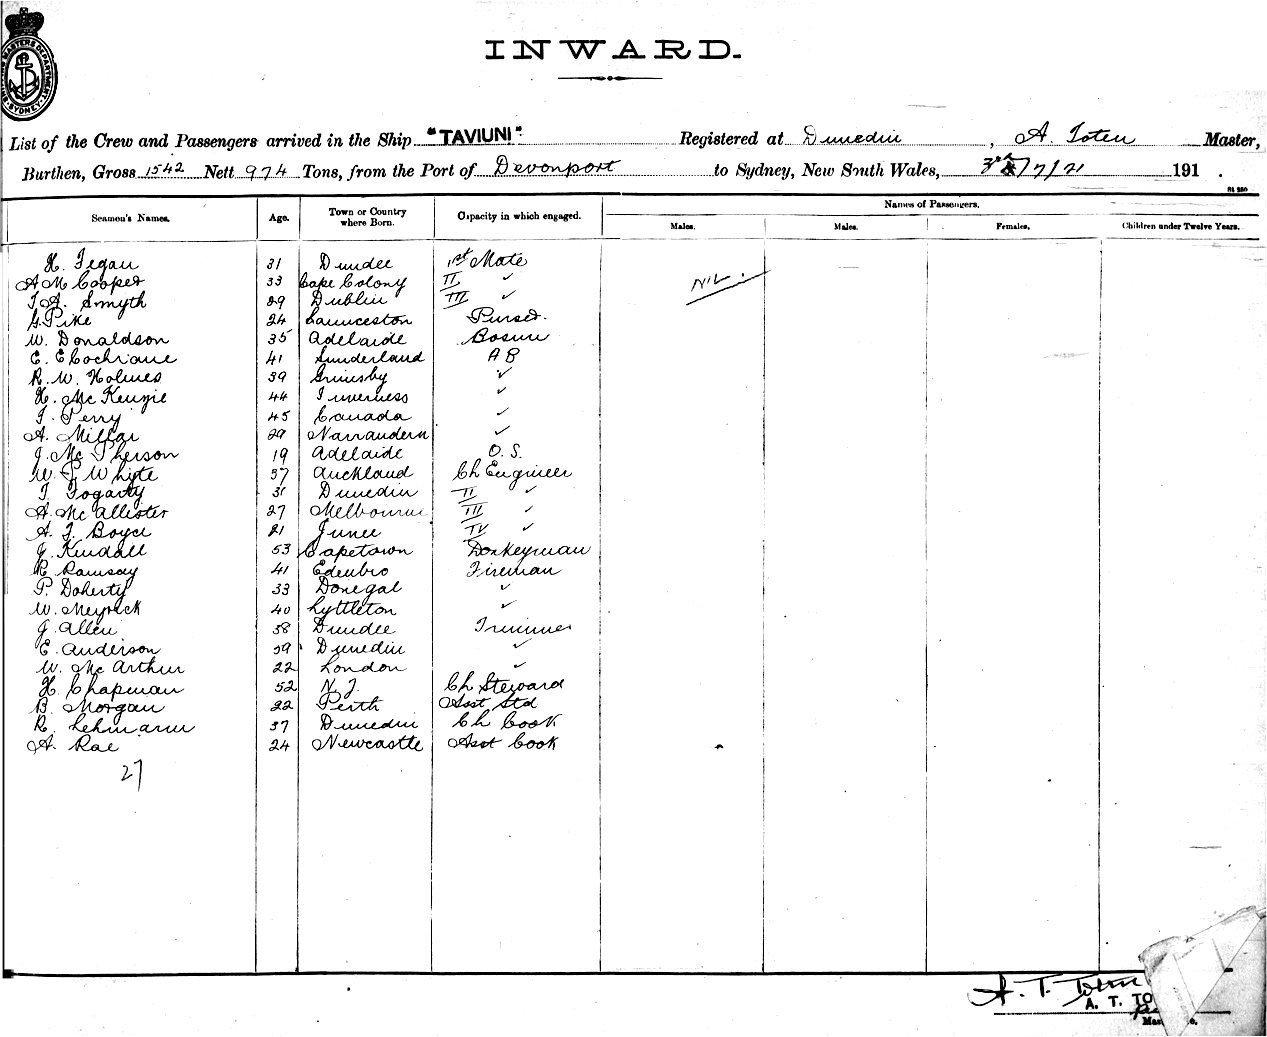 INWARD.
List of the Crew and Passengers arrived in the Ship "TAVIUNI" Registered at Dunedin, A. Toten Master,
Burthen, Gross 1542 Nett 974 Tons, from the Port of Devonport to Sydney, New South Wales, 3rd/7/21 191 .
Seamen's Names. Age. Town or Country where Born. Capacity in which engaged. Names of Passengers.
Males. Males. Females. Children under Twelve Years.
H. Tegau 31 Dundee 1st Mate
A M Cooper 33 Cape Colony II ✓ NIL.
T. A. Smyth 29 Dublin III ✓
G. Pike 24 Launceston Purser.
W. Donaldson 35 Adelaide Bosun
E. E Cochrane 41 Sunderland A B
R. W. Holmes 39 Grimsby ✓
H. Mc Kenzie 44 Inverness ✓
T. Perry 45 Canada ✓
A. Millar 29 Narrandera ✓
J. Mc Pherson 19 Adelaide O. S.
W. J Whyte 37 Auckland Ch Engineer
T. Fogarty 31 Dunedin II ✓
A. Mc Allister 27 Melbourne III ✓
A. J. Boyce 21 Junee IV ✓
J. Kendall 53 Capetown Donkeyman
R. Ramsay 41 Edenbro Fireman
P. Doherty 33 Donegal ✓
W. Meyrick 40 Lyttleton ✓
J. Allen 38 Dundee Trimmer
E. Anderson 39 Dunedin ✓
W. Mc Arthur 22 London ✓
H. Chapman 52 N. Z. Ch Steward
B. Morgan 22 Perth Asst Std
R. Lehmann 37 Dunedin Ch Cook
A. Rae 24 Newcastle Asst Cook
27
A. T. Toten
A. T. TO